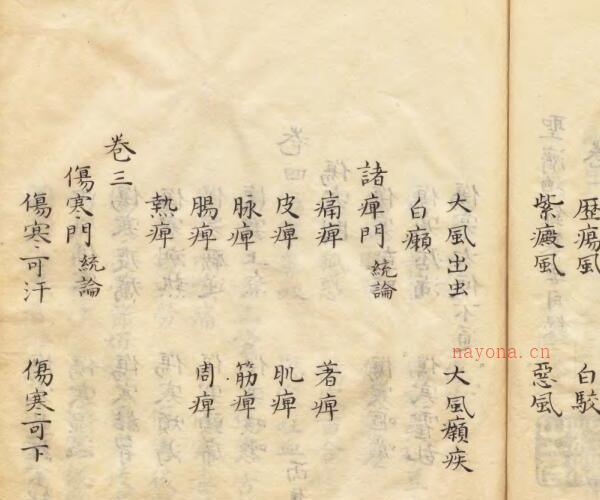 歴瘍風 白駁
紫癜風 惡風
大風出虫 大風癩疾
白癩
諸痺門 統論
痛痺 著痺
皮痺 肌痺
脉痺 筋痺
腸痺 周痺
熱痺
卷三
傷寒門 統論
傷寒可汗 傷寒可下
nayona.cn